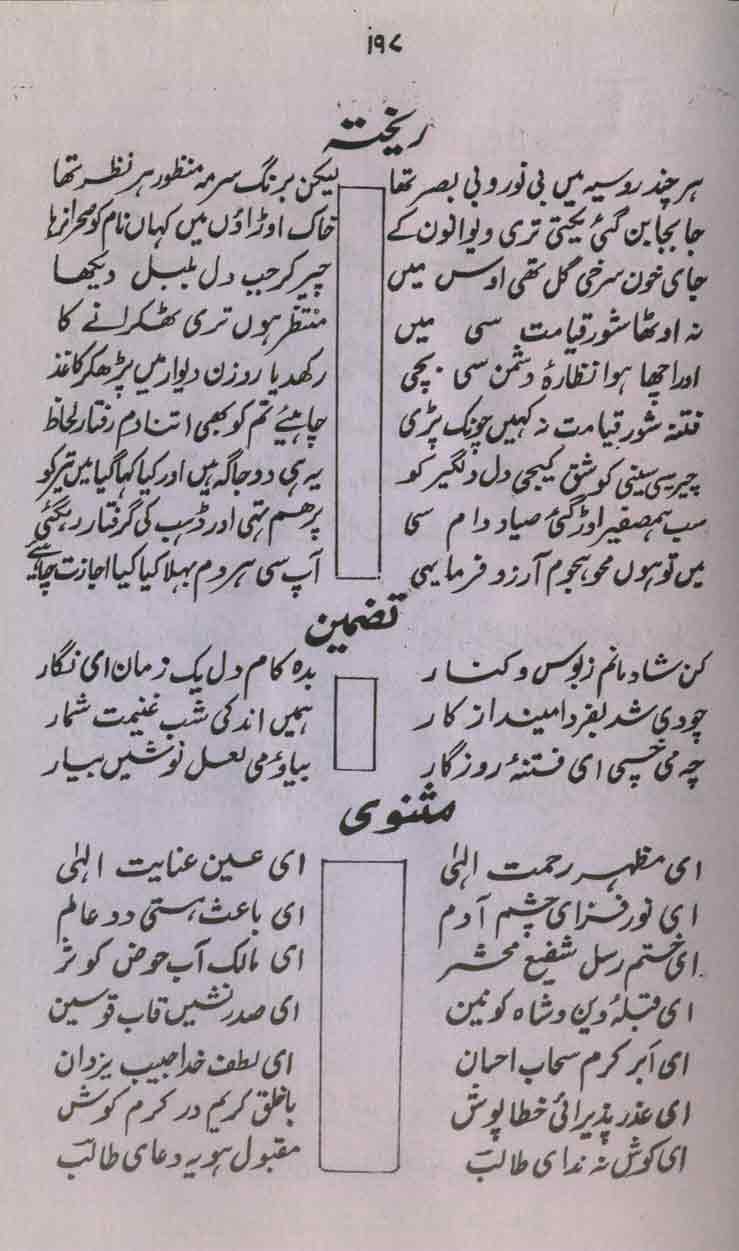 ۱۹۷
ریختہ
ہر چند روسیہ میں بی نور و بی بصر تھا لیکن برنگ سرمہ منظور ہر نظر تھا
جا بجا بن گئی تختی تری دیوانون کے خاک اوڑاؤں میں کہاں نام کو صحرا نرہا
جای خون سرخی گل تھی اوس میں چیر کر جب دل بلبل دیکھا
نہ اوٹھا شور قیامت سی میں منتظر ہوں تری ٹھکرانے کا
اور اچھا ہوا نظارۂ دشمن سی بچی رکھدیا روزن دیوار میں پڑھکر کاغذ
فتنہ شور قیامت نہ کہیں چونک پڑی چاہیئے تم کو بھی اتنا دم رفتار لحاظ
چیر سی سینی کو شق کیجی دل دلگیر کو یہ ہی دو جاگہ ہیں اور کیا کہا گیا میں تیر کو
سب ہمصفیر اوڑ گئی صیاد دام سی پر ہم تہی اور ڈہب کی گرفتار رہگئی
میں تو ہوں محو ہجوم آرزو فرمایٔی آپ سی ہر دم بہلا کیا کیا اجازت چاہیٔے
تضمین
کن شادمانم ز بوس و کنار بدہ کام دل یک زمان ای نگار
چو دی شد بفردا مینداز کار ہمیں اندکی شب غنیمت شمار
چہ می خسپی ای فتنۂ روزگار بیاؤ می لعل نوشیں بیار
مثنوی
ای مظہر رحمت الہٰی ای عین عنایت الہٰی
ای نور فزای چشم آدم ای باعث ہستی دو عالم
ای ختم رسل شفیع محشر ای مالک آب حوض کوثر
ای قبلۂ دین و شاہ کونین ای صدر نشیں قاب قوسین
ای ابر کرم سحاب احسان ای لطف خدا حبیب یزدان
ای عذر پذیرائی خطا پوش با خلق کریم در کرم کوش
ای گوش نہ ندای طالبؔ مقبول ہو یہ دعای طالبؔ